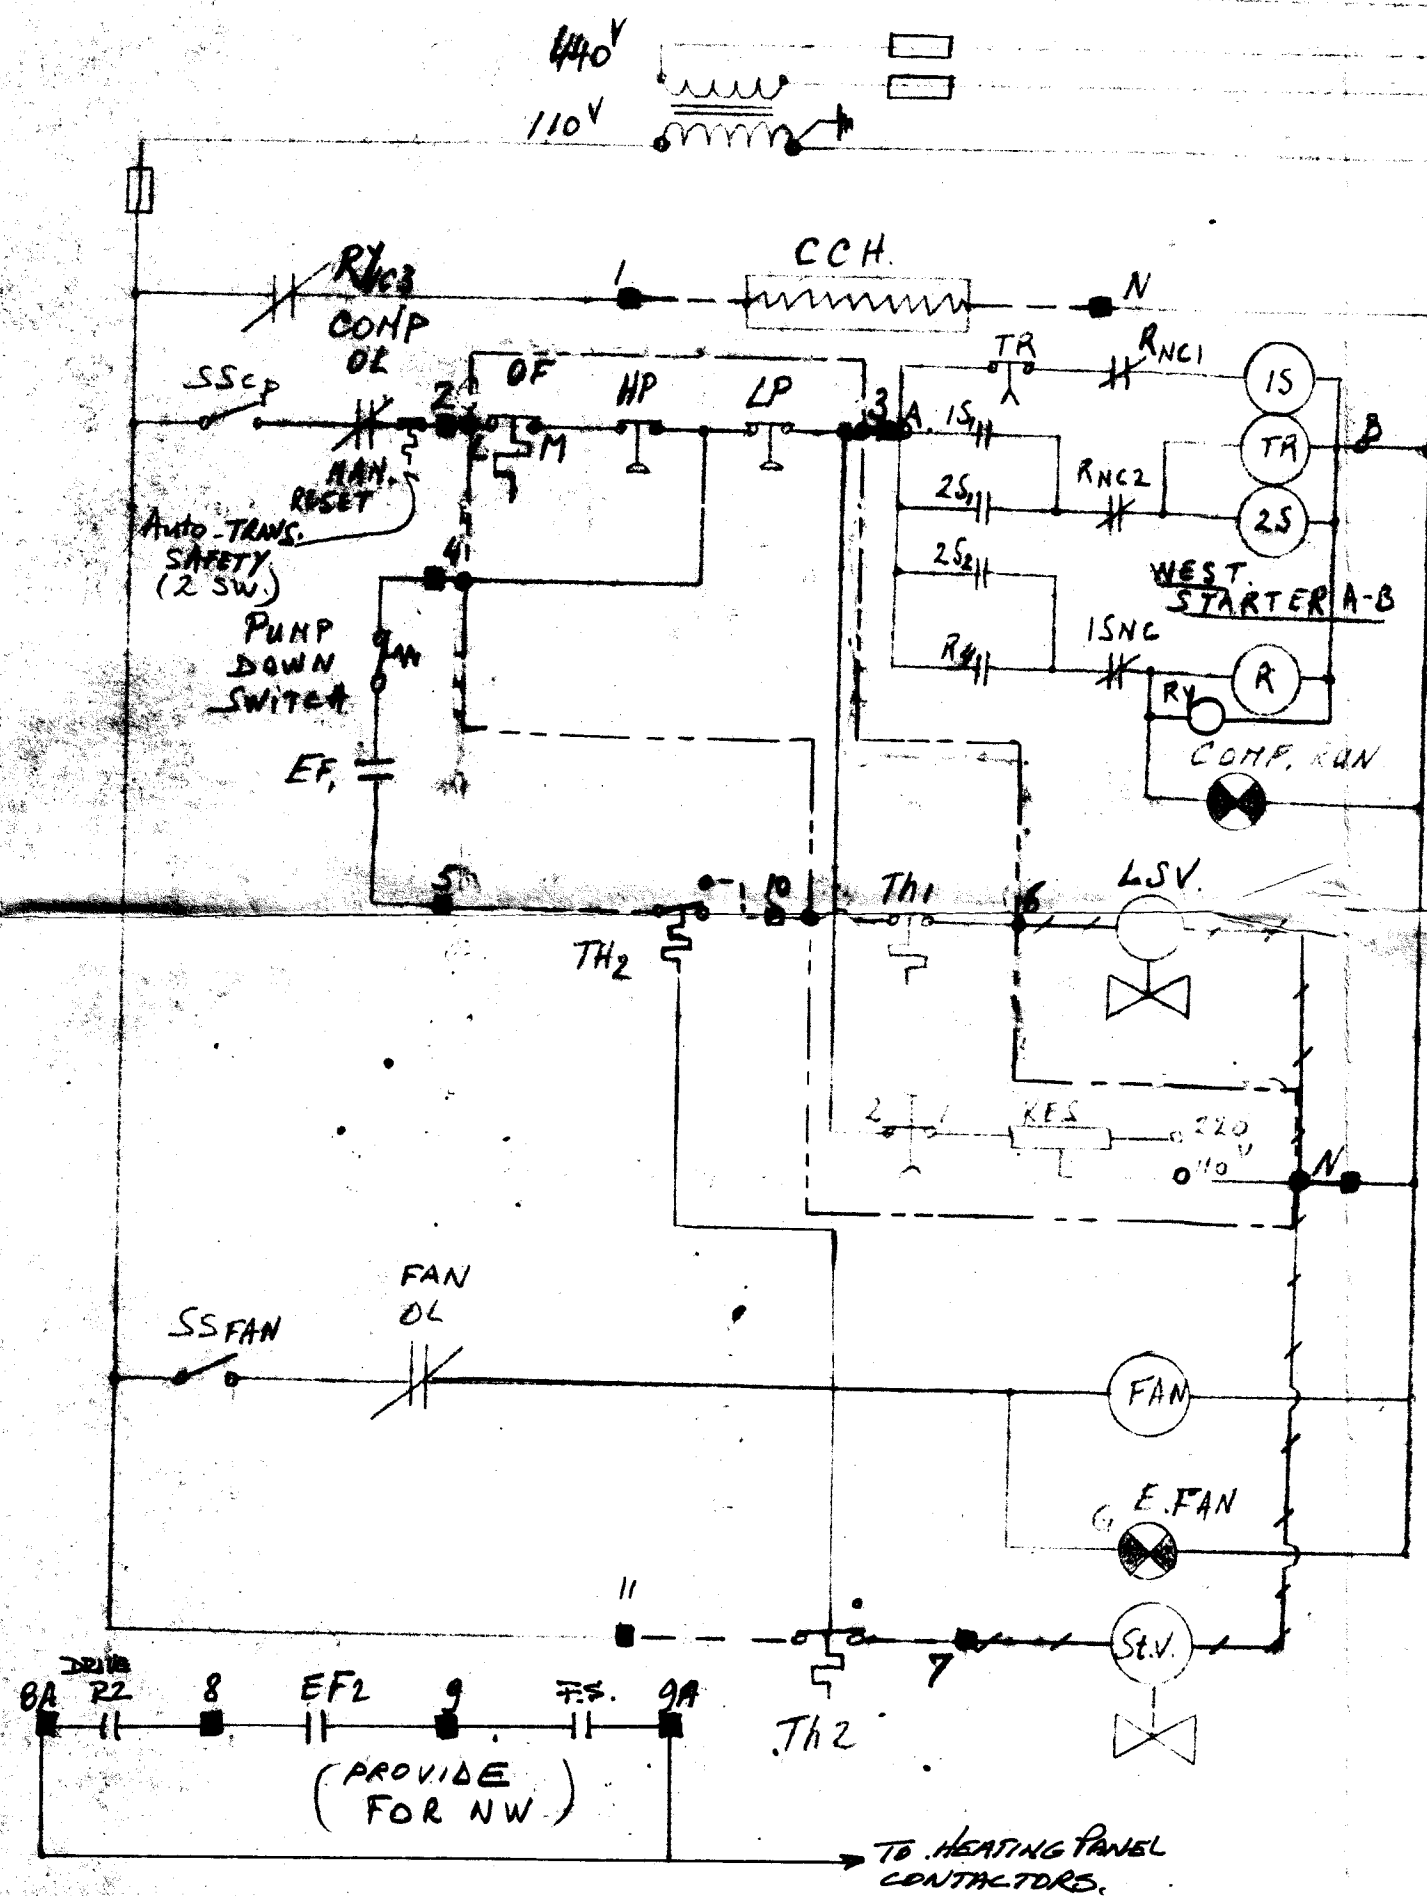 440V
110V
CCH.
RyNC3
1
N
COMP
OL
TR
RNC1
1S
SSCP
2
OF
HP
LP
3
A.
1S1
TR
B
L
M
MAN.
RESET
2S1
RNC2
2S
Auto-TRANS.
SAFETY
(2 SW.)
4
2S2
WEST.
STARTER A-B
PUMP
DOWN
SWITCH
Ry
1SNC
R
Ry
EF1
COMP. RUN
5
10
Th1
6
LSV.
TH2
2
1
RES
220V
110
N
FAN
OL
SSFAN
FAN
G
E.FAN
11
7
St.V.
DRIVE
8A
R2
8
EF2
9
F.S.
9A
Th2
(PROVIDE
FOR NW)
TO HEATING PANEL
CONTACTORS.